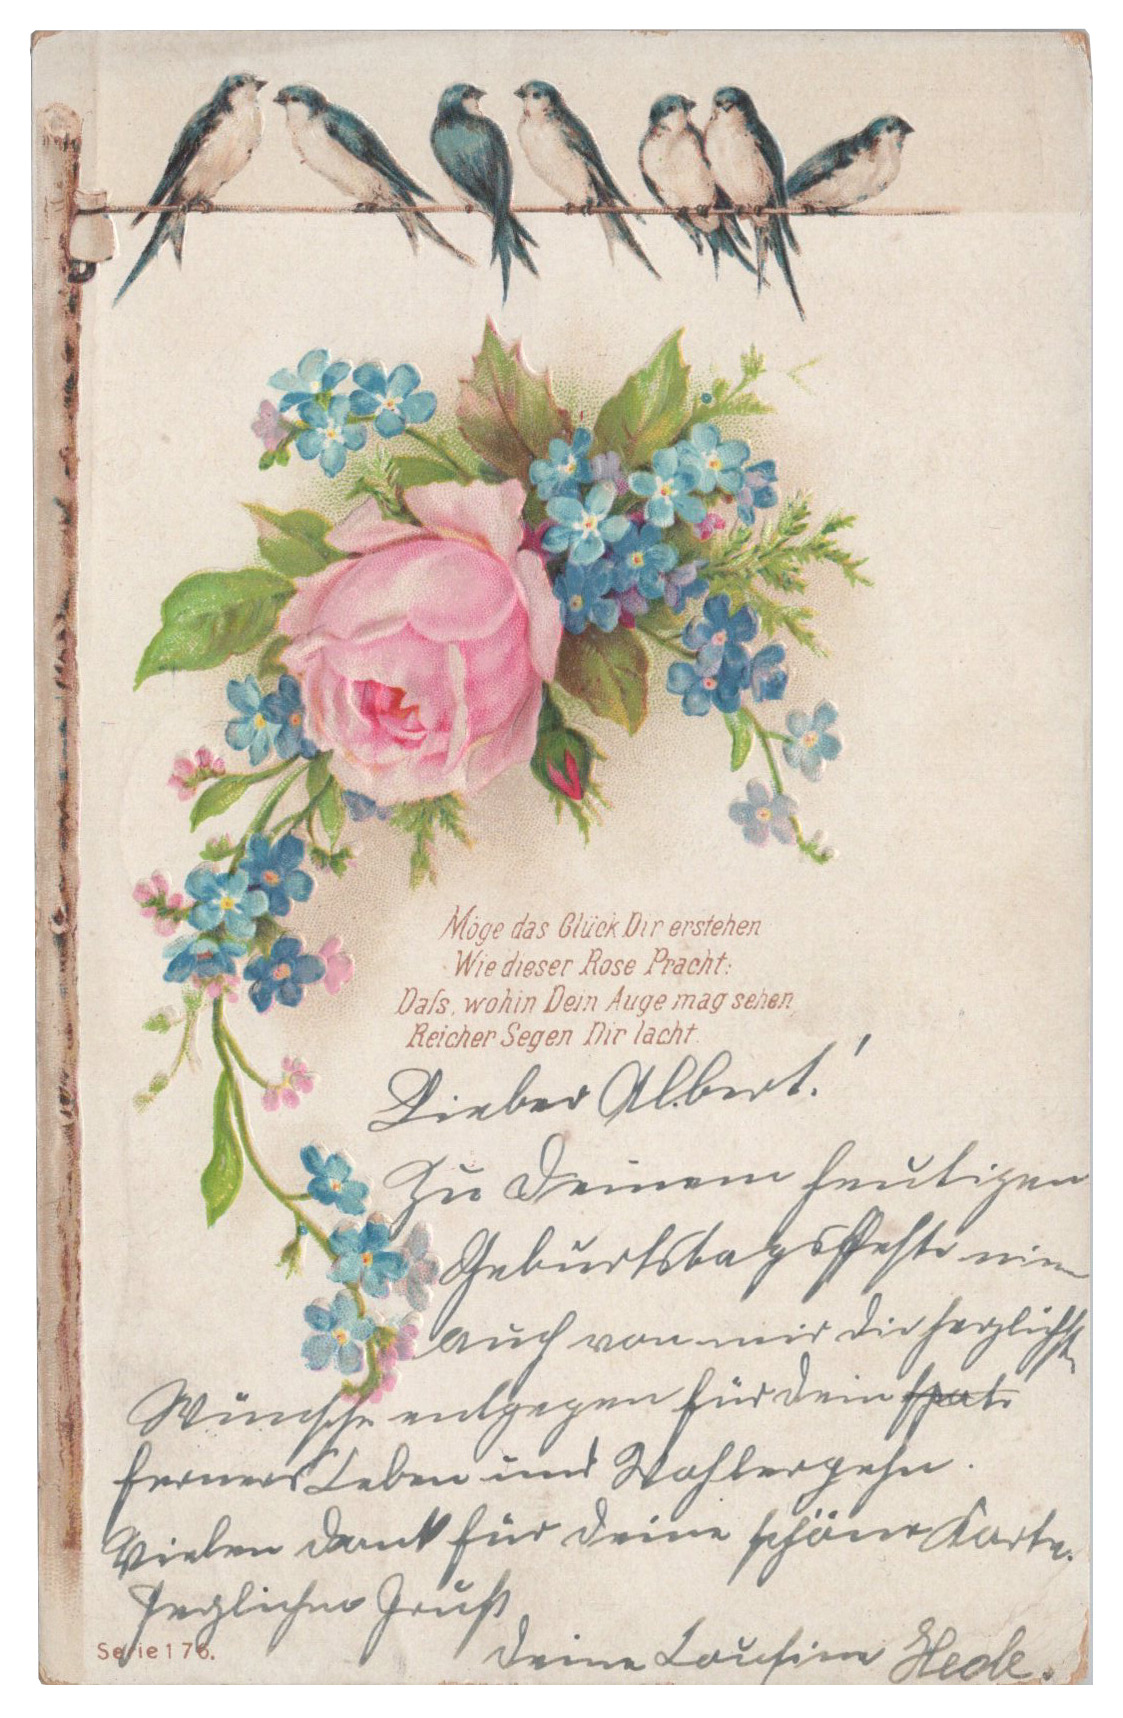 Möge das Glück Dir erstehen
Wie dieser Rose Pracht:
Daſs, wohin Dein Auge mag sehen,
Reicher Segen Dir lacht.
Lieber Albert!
Zu Deinem heutigen
Geburtstagsfeste nim
auch von mir die herzlichst
Wünsche entgegen für dein
ferneres Leben und Wohlergehn.
Vielen Dank für deine schöne Karte.
Herzlichen Gruß
Deine Cousine Hede.
Serie 176.